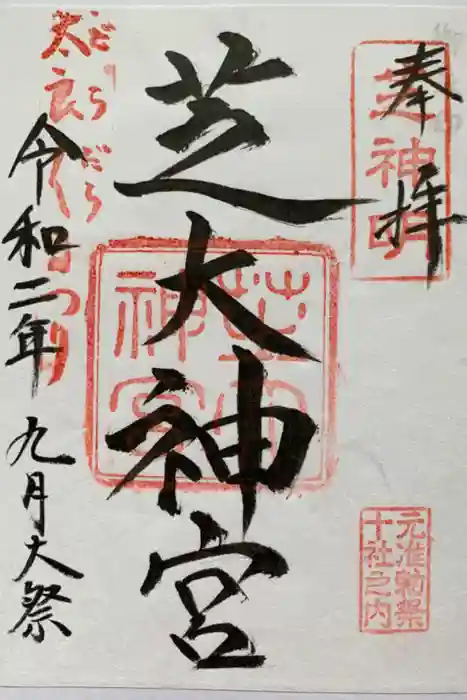 奉拝
芝神明
芝大神宮
芝大神宮
元准勅祭
十社之内
だらだら
太良
令和二年 九月大祭